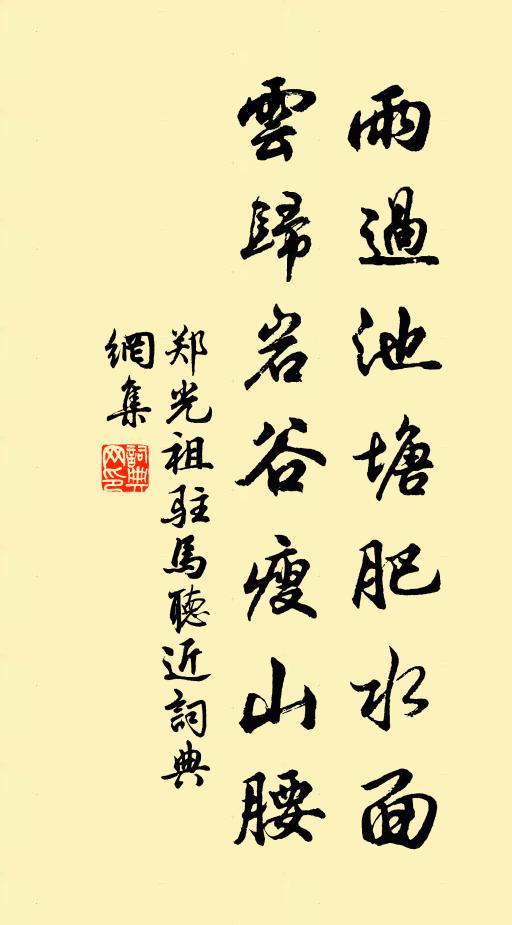 雨過池塘肥水面
雲歸岩谷瘦山腰
郑光祖駐馬聽近詞典
網集
詞典
网印